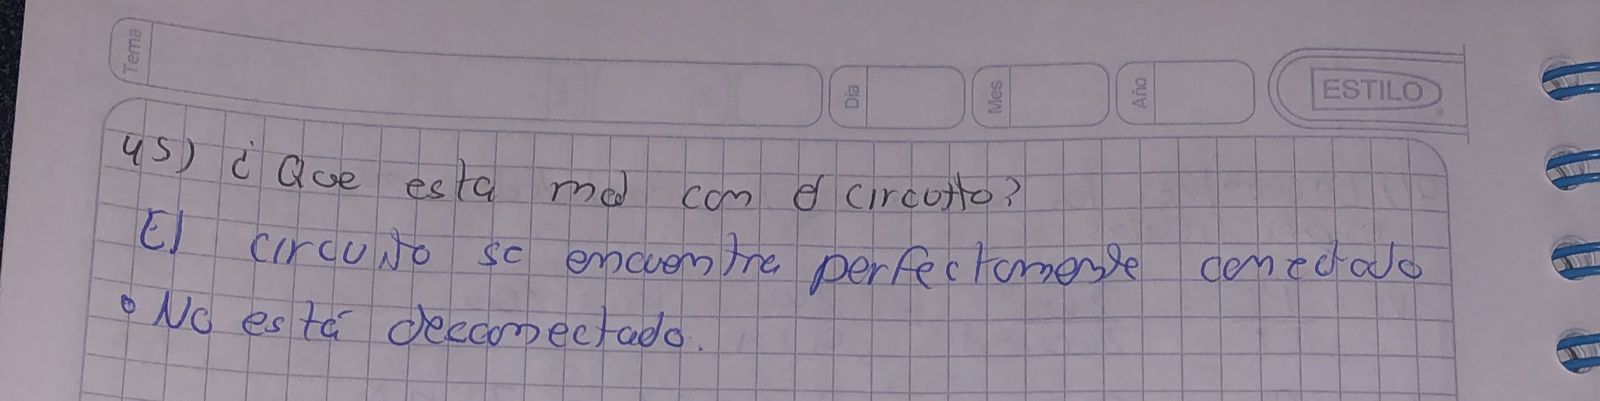 Tema
Día
Mes
Año
ESTILO
45) ¿Que esta mal con el circuito?
El circuito se encuentra perfectamente conectado
• No está desconectado.